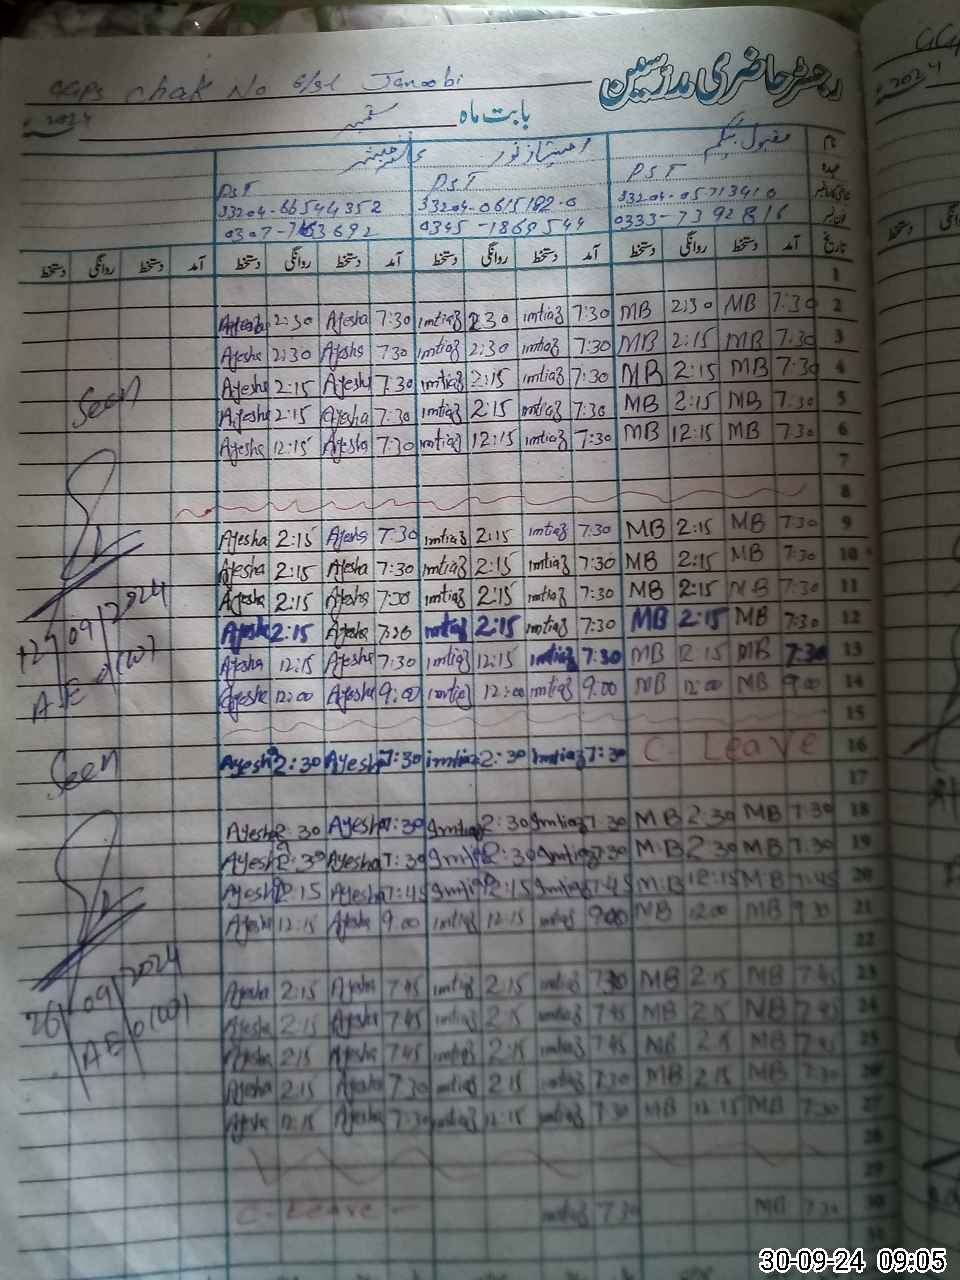 رجسٹر حاضری مدرسین
GGPS Chak No 6/SL Janoobi
بابت ماہ ستمبر 2024
نام مقبول بیگم امتیاز نور
عہدہ PST PST PST
33204-0571341-0 33204-0615192-0 33204-6654435 2
0333-7392816 0345-1869544
تاریخ آمد دستخط روانگی دستخط آمد دستخط روانگی دستخط آمد دستخط روانگی دستخط آمد دستخط روانگی دستخط
1
Ayesha 2:30 Ayesha 7:30 imtiaz 2:30 imtiaz 7:30 MB 2:30 MB 7:30 2
Ayesha 2:30 Ayesha 7:30 imtiaz 2:30 imtiaz 7:30 MB 2:15 MB 7:30 3
Ayesha 2:15 Ayesha 7:30 imtiaz 2:15 imtiaz 7:30 MB 2:15 MB 7:30 4
Seen
Ayesha 2:15 Ayesha 7:30 imtiaz 2:15 imtiaz 7:30 MB 2:15 MB 7:30 5
Ayesha 12:15 Ayesha 7:30 imtiaz 12:15 imtiaz 7:30 MB 12:15 MB 7:30 6
7
8
Ayesha 2:15 Ayesha 7:30 imtiaz 2:15 imtiaz 7:30 MB 2:15 MB 7:30 9
Ayesha 2:15 Ayesha 7:30 imtiaz 2:15 imtiaz 7:30 MB 2:15 MB 7:30 10
Ayesha 2:15 Ayesha 7:30 imtiaz 2:15 imtiaz 7:30 MB 2:15 MB 7:30 11
09/2024
Ayesha 2:15 Ayesha imtiaz 2:15 imtiaz 7:30 MB 2:15 MB 7:30 12
Ayesha 12:15 Ayesha 7:30 imtiaz 12:15 imtiaz 7:30 MB 12:15 MB 7:30 13
AEO(W)
Ayesha 12:00 Ayesha 9:00 imtiaz 12:00 imtiaz 9:00 MB 12:00 MB 9:00 14
15
Seen
Ayesha 2:30 Ayesha 7:30 imtiaz 2:30 imtiaz 7:30 C-Leave 16
17
Ayesha 2:30 Ayesha 7:30 Imtiaz 2:30 Imtiaz 7:30 MB 2:30 MB 7:30 18
Ayesha 2:30 Ayesha 7:30 Imtiaz 2:30 Imtiaz 7:30 M.B 2:30 MB 7:30 19
Ayesha 12:15 Ayesha 7:45 Imtiaz 12:15 Imtiaz 7:45 M.B 12:15 MB 7:45 20
Ayesha 12:15 Ayesha 9:00 imtiaz 12:15 imtiaz 9:00 MB 12:00 MB 9:30 21
22
Ayesha 2:15 Ayesha 7:45 imtiaz 2:15 imtiaz MB 2:15 MB 7:45 23
26/09/2024
Ayesha 2:15 Ayesha 7:45 imtiaz 2:15 imtiaz 7:45 MB 2:15 MB 7:45 24
AEO(W)
Ayesha 2:15 Ayesha 7:45 imtiaz 2:15 imtiaz 7:45 MB 2:15 MB 7:45 25
Ayesha 2:15 Ayesha 7:30 imtiaz 2:15 imtiaz 7:30 MB 2:15 MB 7:30 26
Ayesha 12:15 Ayesha 7:30 imtiaz 12:15 imtiaz 7:30 MB 12:15 MB 7:30 27
28
29
C-Leave imtiaz 7:30 MB 7:30 30
31
30-09-24 09:05